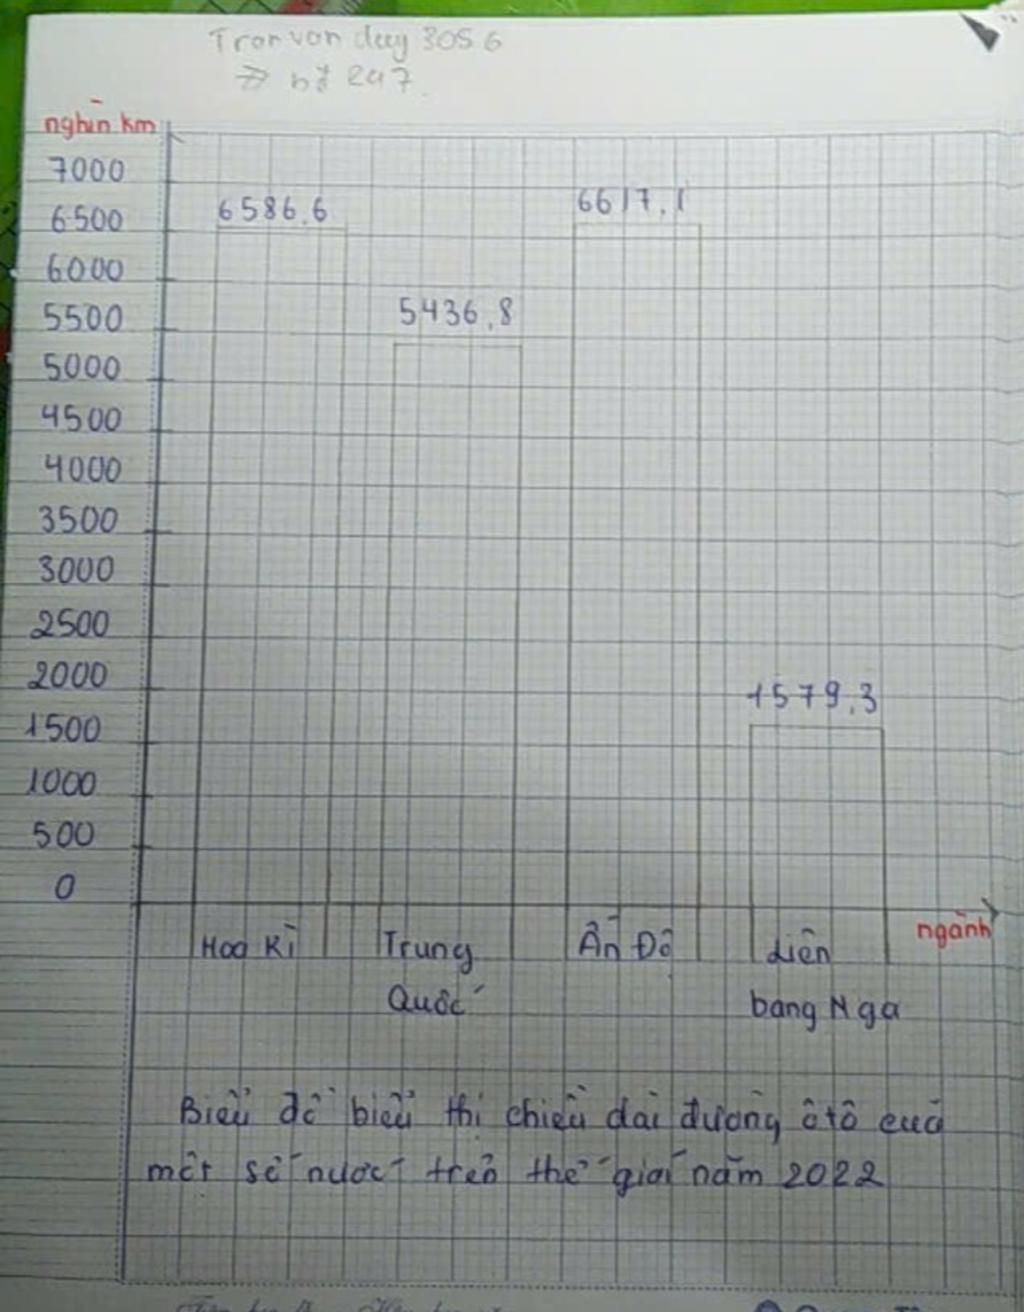 Tran van duy 3056
nghìn km
7000
6586,6
6617,1
6500
6000
5436,8
5500
5000
4500
4000
3500
3000
2500
2000
1579,3
1500
1000
500
0
ngành
Hoa Kì
Trung Quốc
Ấn Độ
Liên bang Nga
Biểu đồ biểu thị chiều dài đường ôtô của
một số nước trên thế giới năm 2022